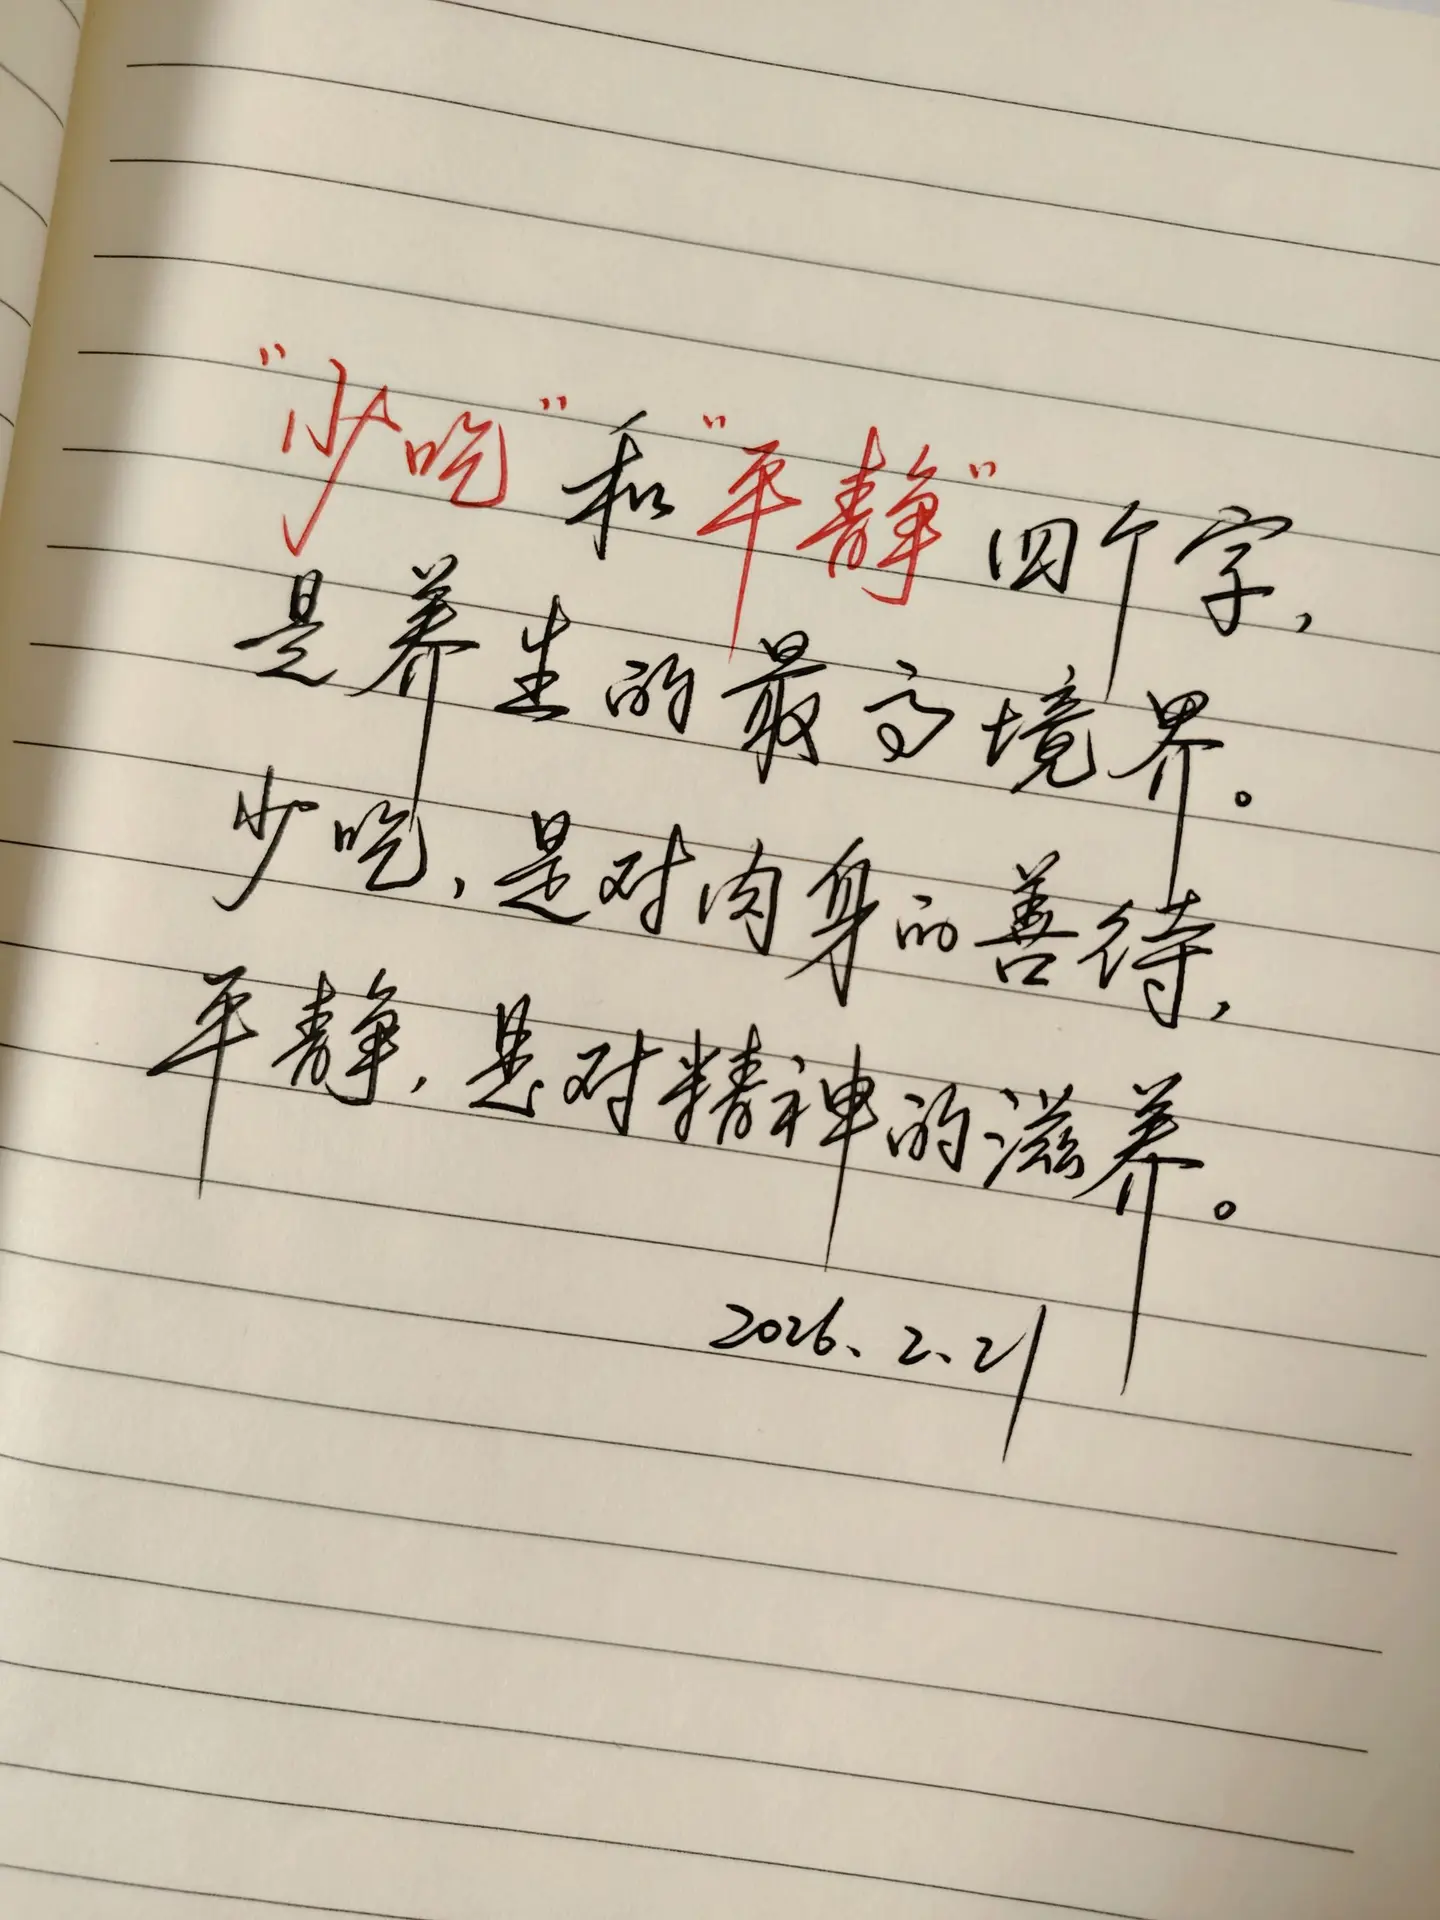 “少吃”和“平静”四个字，
是养生的最高境界。
少吃，是对肉身的善待，
平静，是对精神的滋养。
2026、2、21